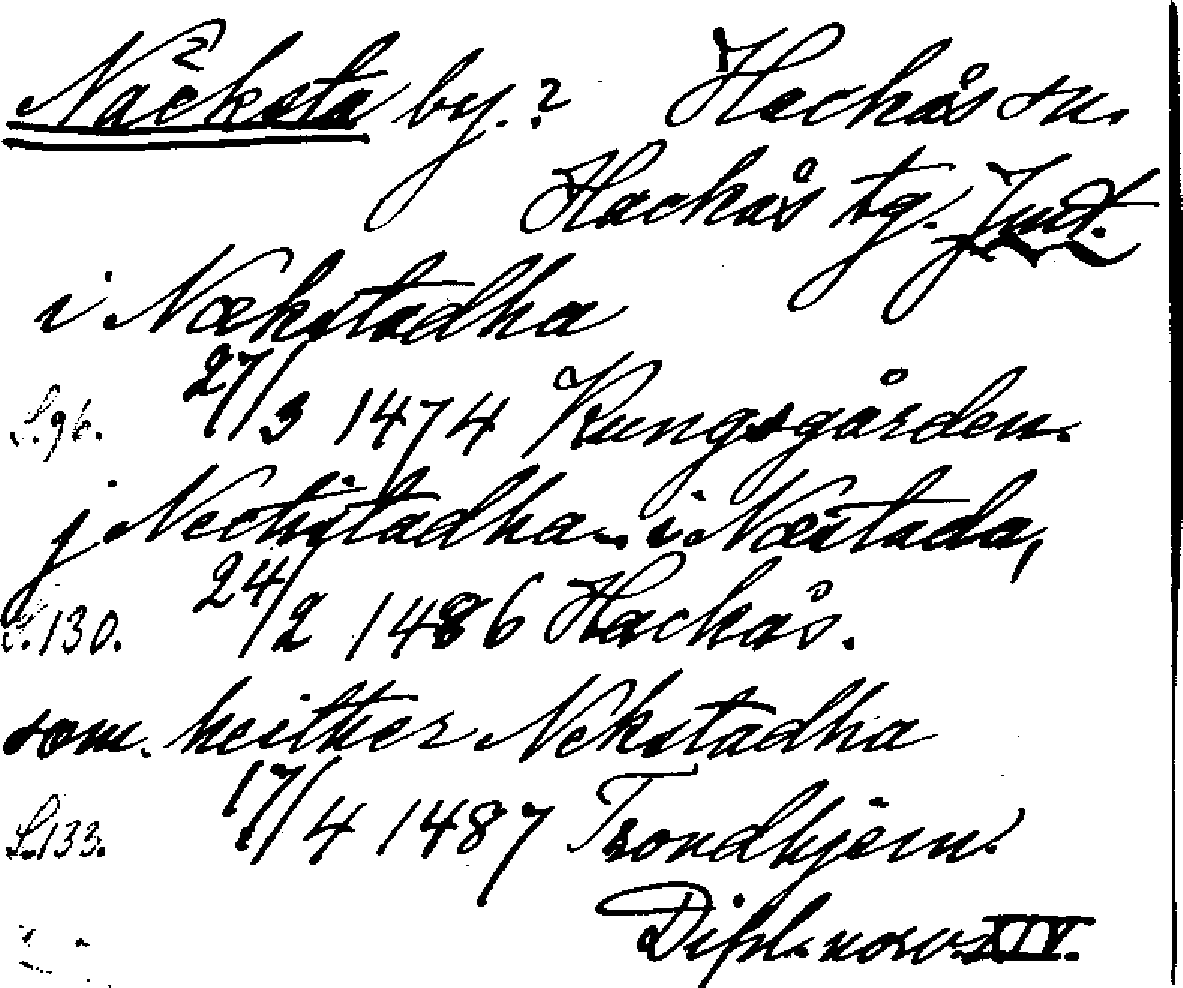 Näcksta by.? Hackås sn.
Hackås tg. Jmtl.
i Nækstadha
S.96. 27/3 1474 Kungsgården.
j Neckstadha. i Næstada,
S.130. 24/2 1486 Hackås.
som. heither Nekstadha
S.133. 17/4 1487 Trondhjem.
Dipl. norv. XIV.